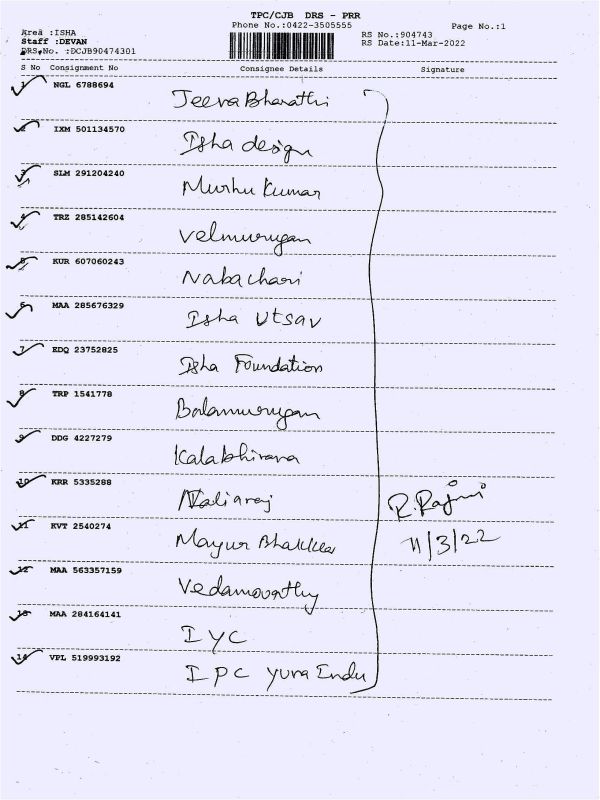 TPC/CJB DRS - PRR
Phone No.:0422-3505555
Page No.:1
Area :ISHA
Staff :DEVAN
DRS.No. :DCJB90474301
RS No.:904743
RS Date:11-Mar-2022
S No Consignment No Consignee Details Signature
1 NGL 6788694 Jeeva Bharathi
2 IXM 501134570 Isha design
3 SLM 291204240 Muthu Kumar
4 TRZ 285142604 Velmurugan
5 KUR 607060243 Nabachari
6 MAA 285676329 Isha Utsav
7 EDQ 23752825 Isha Foundation
8 TRP 1541778 Balamurugan
9 DDG 4227279 Kalabhirava
10 KRR 5335288 R. Rajini
11 KVT 2540274 Mayur Bhakkar 11/3/22
12 MAA 563357159 Vedamoorthy
13 MAA 284164141 IYC
14 VPL 519993192 IPC Yuva Endu